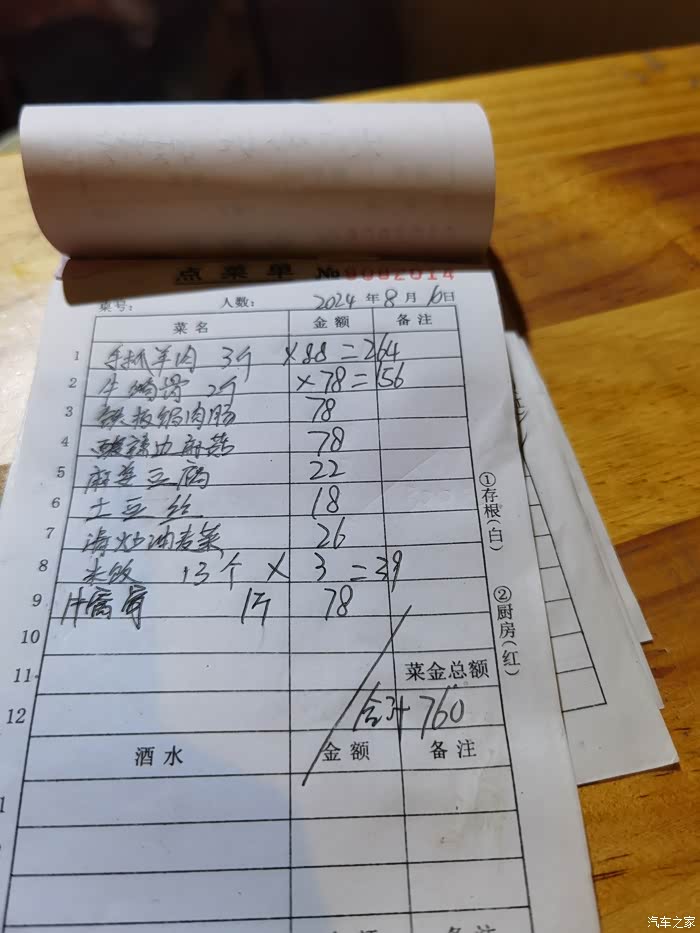 点菜单 № 9002014
桌号： 人数： 2024 年 8 月 16 日
菜名 金额 备注
1 手抓羊肉 3斤 ×88=264
2 牛窝骨 2斤 ×78=156
3 铁板焗肉肠 78
4 酸辣 蘑菇 78
5 麻婆豆腐 22
6 土豆丝 18
7 清炒油麦菜 26
8 米饭 13个 × 3 =39
9 牛窝骨 1斤 78
10
11 菜金总额
12 合计 760
酒水 金额 备注
1
备注
①存根(白)
②厨房(红)
汽车之家